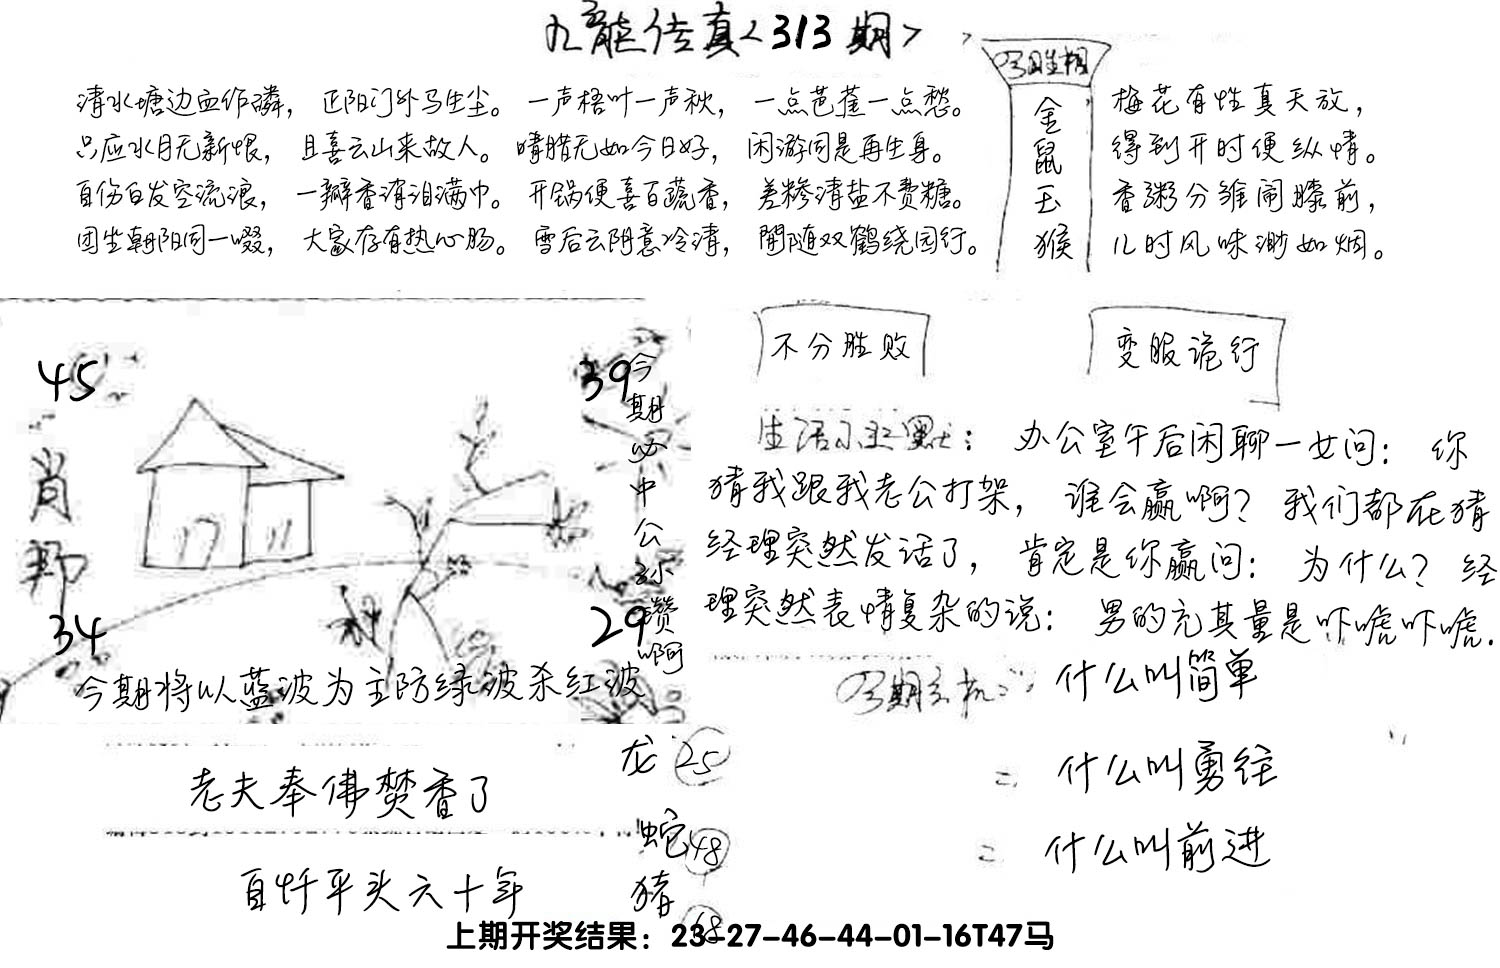 九龙传真<313期>
清水塘边血作磷，正阳门外马生尘。一声梧叶一声秋，一点芭蕉一点愁。
只应水月无新恨，且喜云山来故人。晴腊无如今日好，闲游同是再生身。
自伤白发空流浪，一瓣香消泪满巾。开锅便喜百蔬香，差糁清盐不费糖。
团坐朝阳同一啜，大家存有热心肠。雪后云阴意冷清，閒随双鹤绕园行。
金鼠玉猴
梅花有性真天放，
得到开时便纵情。
香粥分雏闹膝前，
儿时风味渺如烟。
不分胜败
变服诡行
45
39
肖
34
29
今期必中公
赞啊
今期将以蓝波为主防绿波杀红波
生活幽默：办公室午后闲聊一女问：你
猜我跟我老公打架，谁会赢啊？我们都在猜
经理突然发话了，肯定是你赢问：为什么？经
理突然表情复杂的说：男的充其量是吓唬吓唬.
什么叫简单
二 什么叫勇往
二 什么叫前进
老夫奉佛焚香了
自忏平头六十年
龙 25
蛇 48
猪
上期开奖结果：23-27-46-44-01-16T47马